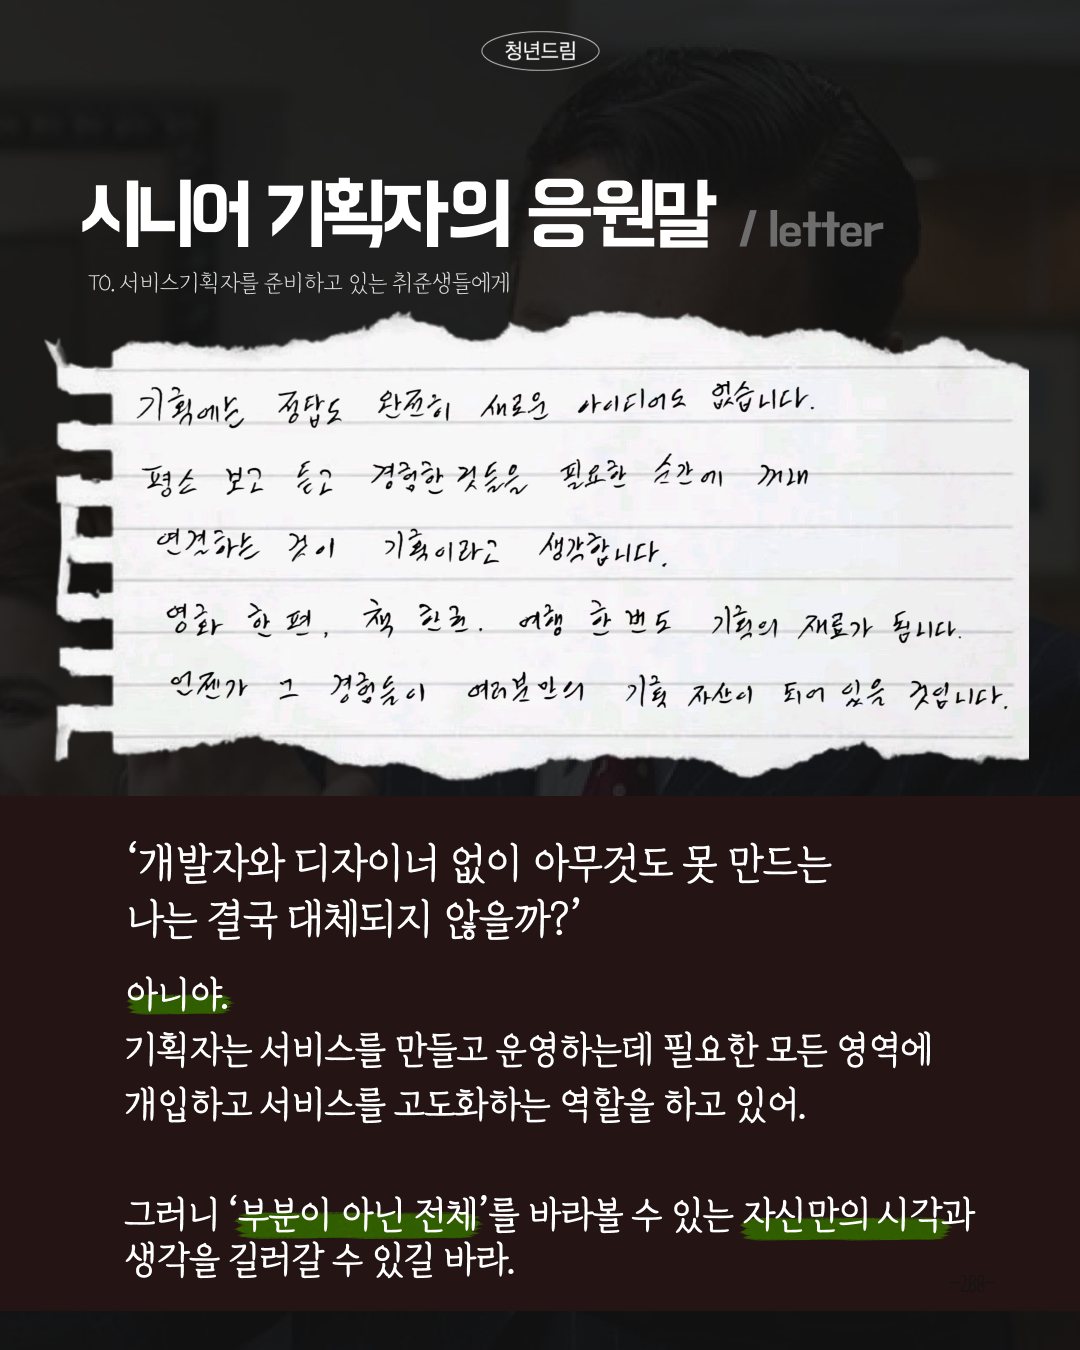 청년드림
시니어 기획자의 응원말 / letter
TO. 서비스기획자를 준비하고 있는 취준생들에게
기획에는 정답도 완전히 새로운 아이디어도 없습니다.
평소 보고 듣고 경험한 것들을 필요한 순간에 꺼내
연결하는 것이 기획이라고 생각합니다.
영화 한 편, 책 한권. 여행 한 번도 기획의 재료가 됩니다.
언젠가 그 경험들이 여러분만의 기획 자산이 되어 있을 것입니다.
‘개발자와 디자이너 없이 아무것도 못 만드는
나는 결국 대체되지 않을까?’
아니야.
기획자는 서비스를 만들고 운영하는데 필요한 모든 영역에
개입하고 서비스를 고도화하는 역할을 하고 있어.
그러니 ‘부분이 아닌 전체’를 바라볼 수 있는 자신만의 시각과
생각을 길러갈 수 있길 바라.